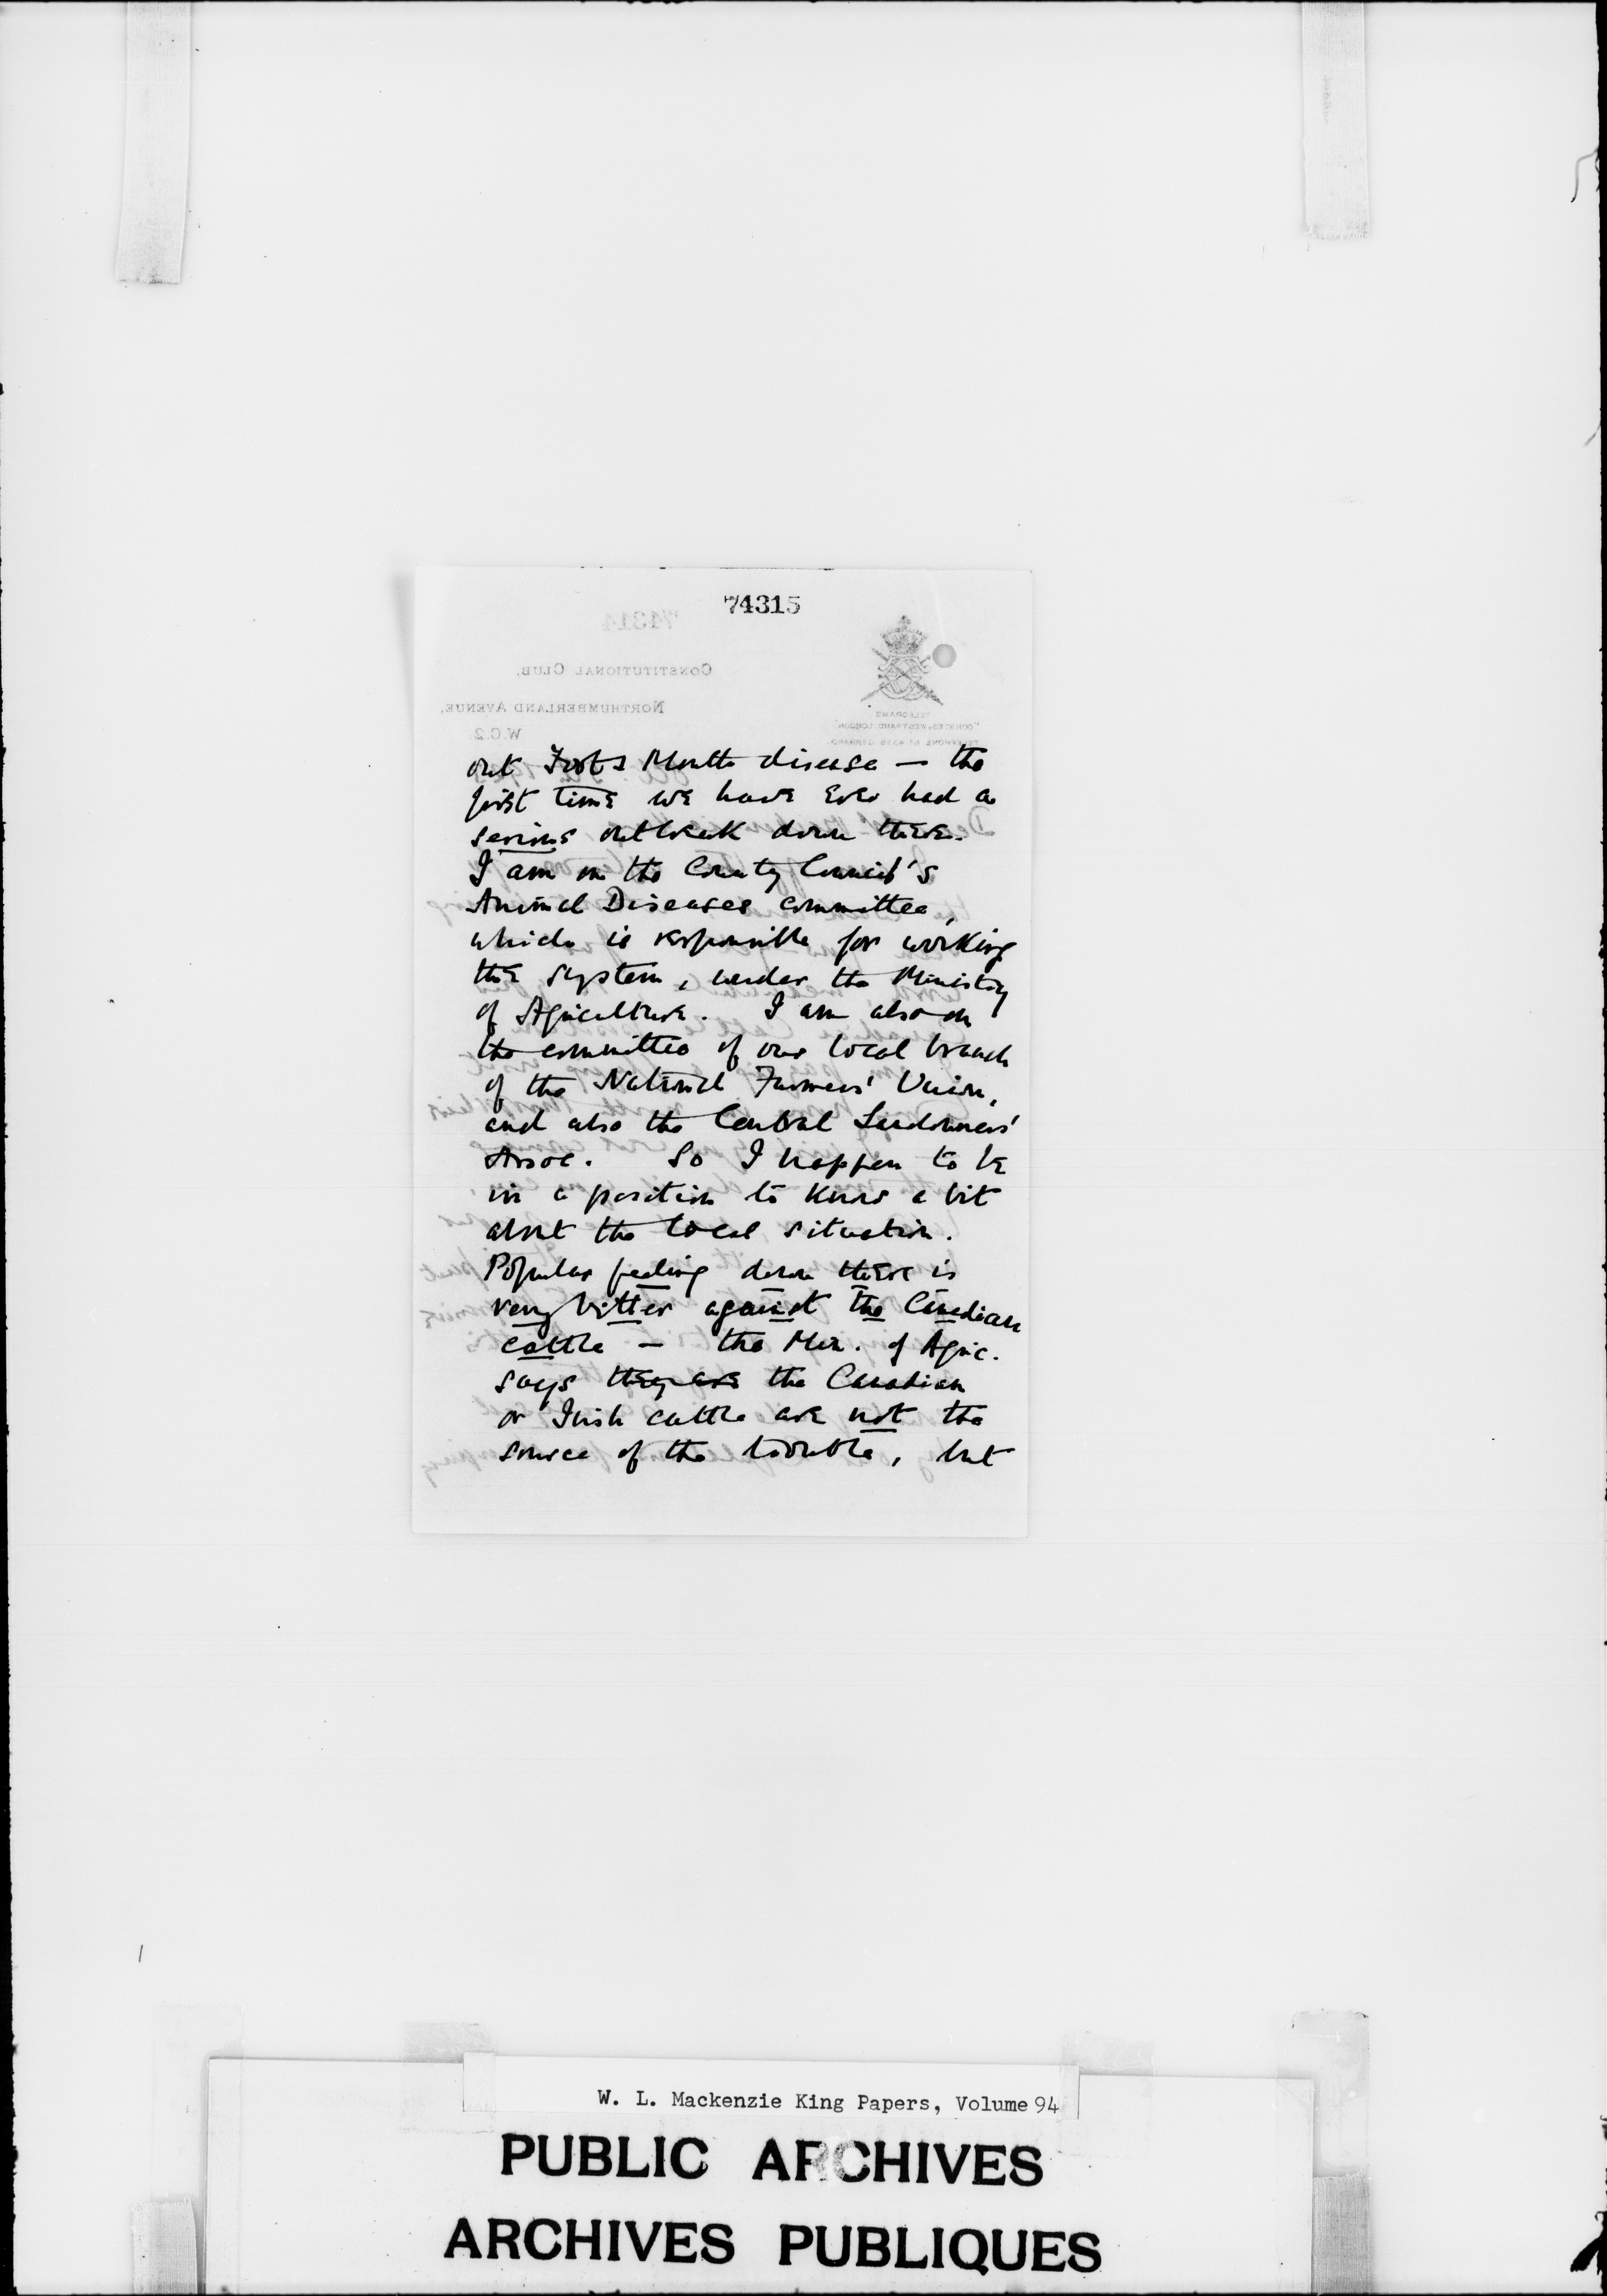 74315
out Foot & Mouth disease — the
first time we have ever had a
serious outbreak down there.
I am on the County Council's
Animal Diseases committee,
which is responsible for working
the system, under the Ministry
of Agriculture. I am also on
the committee of our local branch
of the National Farmers' Union,
and also the Central Landowners'
Assoc. So I happen to be
in a position to know a bit
about the local situation.
Popular feeling down there is
very bitter against the Canadian
cattle — the Min. of Agric.
says they are the Canadian
or Irish cattle are not the
source of the trouble, but
W. L. Mackenzie King Papers, Volume 94
PUBLIC ARCHIVES
ARCHIVES PUBLIQUES